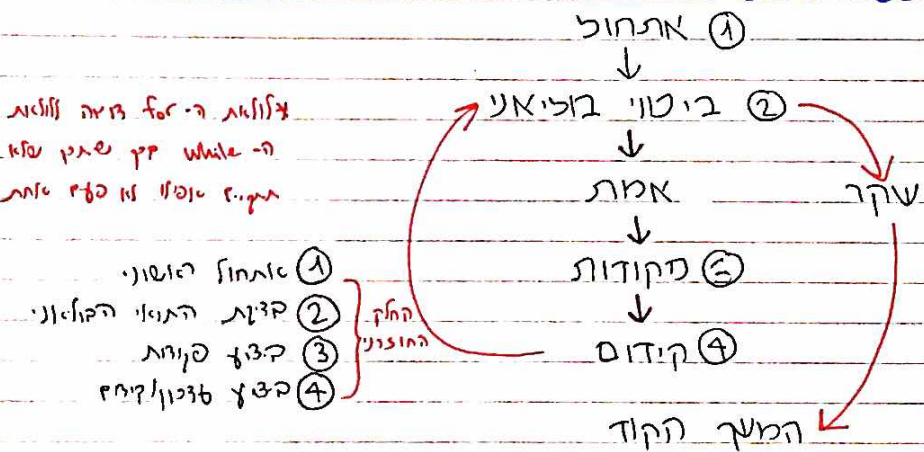 ① אתחול
② ביטוי בוליאני
אמת
שקר
③ פקודות
④ קידום
המשך הקוד
לולאת ה- for דומה ללולאת
ה- while בכך שתכן שלא
תתקיים אפילו לא פעם אחת
① אתחול ראשוני
② בדיקת התנאי הבוליאני
③ ביצוע פקודות
④ ביצוע עדכון/קידום
החלק
החוזרני